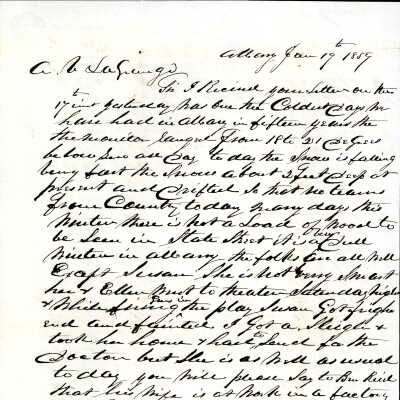 Albany Jan 19th 1859
A V LaGrange
Sir I Recived your Letter on the
17th inst yesterday was one the Coldest Days We
have had in Albany in fifteen years the
thermomiter Ranged From 18 to 21 Degrees
below Zero all Day to day the Snow is falling
very fast the Snow is about 2 feet Deep at
present and Drifted So that no teams
from County today many days this
Winter there is not a Load of Wood to
be Seen in State Street it is a very Dull
Winter in Albany the folks are all Well
Except Susan She is not very Smart
her & Ellen Went to theater Saturday night
& While during the play Susan Got frighte
end and fainted I Got a Sleigh &
took her home & had Send for the
Doctor but She is as Well as usual
to day you Will please Say to Ben
that his Wife is at Work in a factory